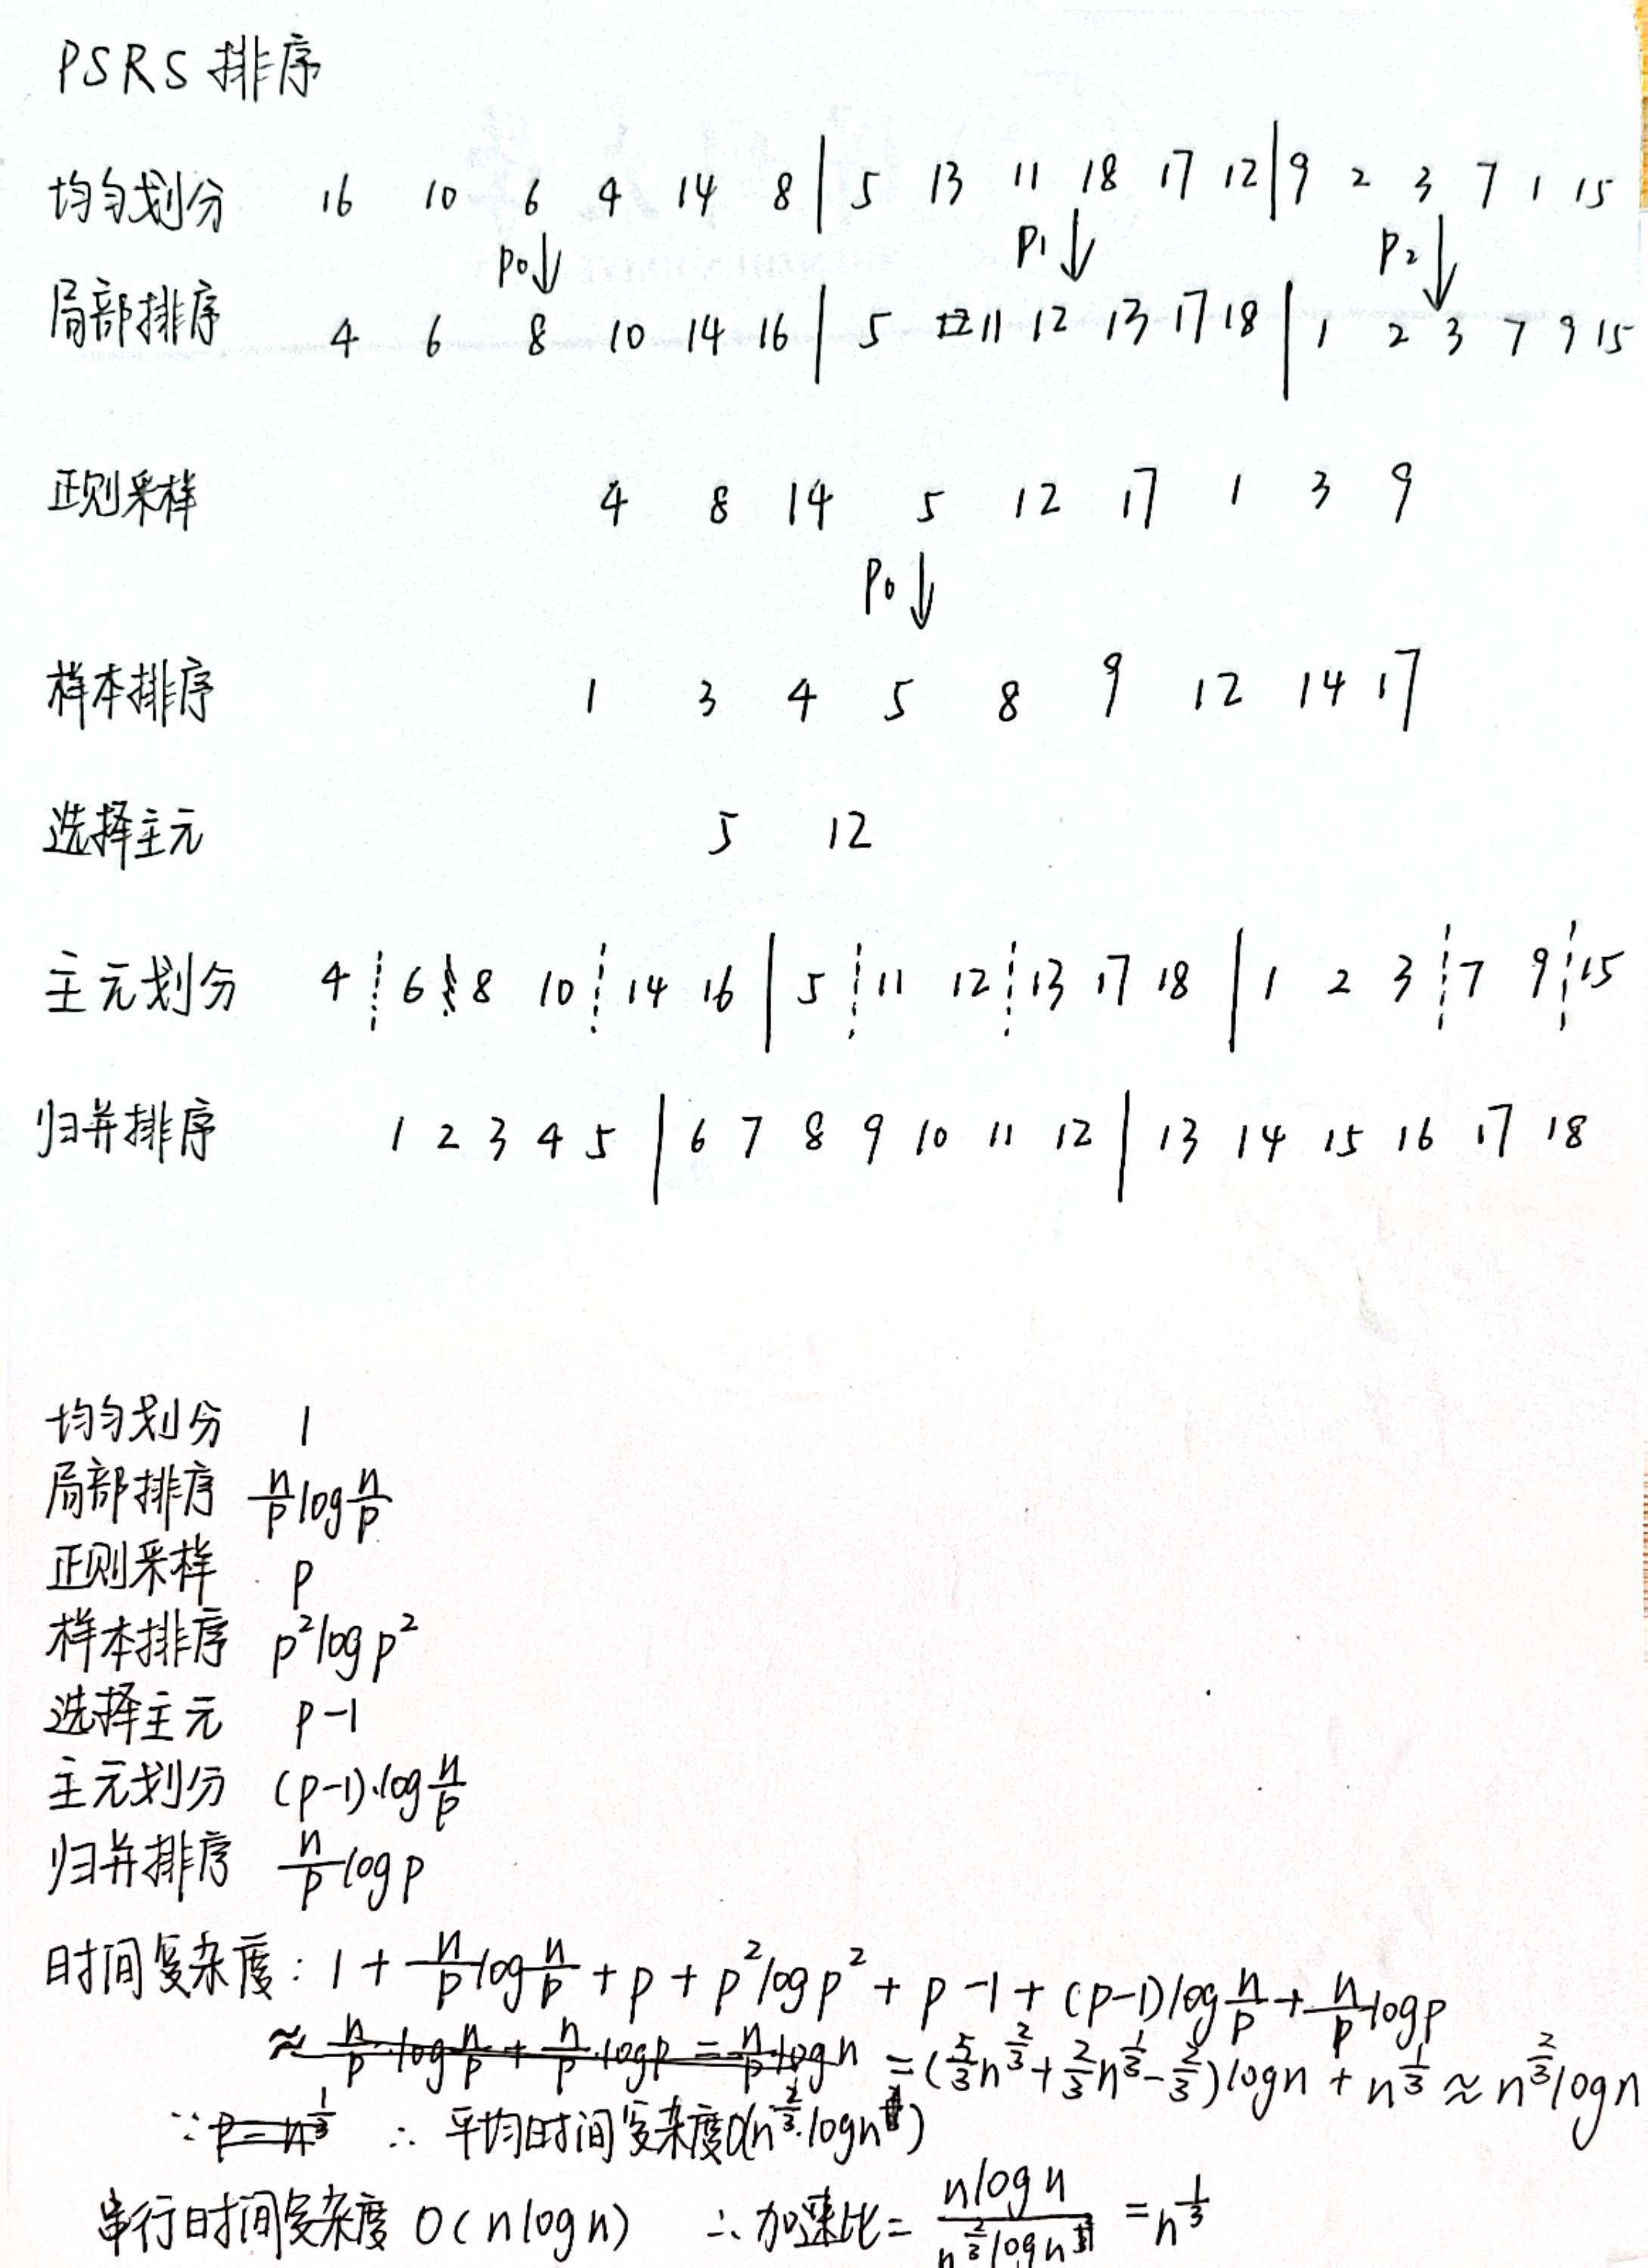 PSRS排序
均匀划分 16 10 6 4 14 8 | 5 13 11 18 17 12 | 9 2 3 7 1 15
P0↓ P1↓ P2↓
局部排序 4 6 8 10 14 16 | 5 11 12 13 17 18 | 1 2 3 7 9 15
正则采样 4 8 14 5 12 17 1 3 9
P0↓
样本排序 1 3 4 5 8 9 12 14 17
选择主元 5 12
主元划分 4 ┊ 6 8 10 ┊ 14 16 | 5 ┊ 11 12 ┊ 13 17 18 | 1 2 3 ┊ 7 9 ┊ 15
归并排序 1 2 3 4 5 | 6 7 8 9 10 11 12 | 13 14 15 16 17 18
均匀划分 1
局部排序 n/p log n/p
正则采样 p
样本排序 p² log p²
选择主元 p-1
主元划分 (p-1)·log n/p
归并排序 n/p log p
时间复杂度: 1 + n/p log n/p + p + p² log p² + p - 1 + (p-1) log n/p + n/p log p
≈ n/p · log n/p + n/p · log p = n/p · log n = (5/3 n^(2/3) + 2/3 n^(1/3) - 2/3) log n + n^(1/3) ≈ n^(2/3) log n
∵ p = n^(1/3) ∴ 平均时间复杂度O(n^(2/3)·log n)
串行时间复杂度 O(n log n) ∴ 加速比 = n log n / n^(2/3) log n = n^(1/3)